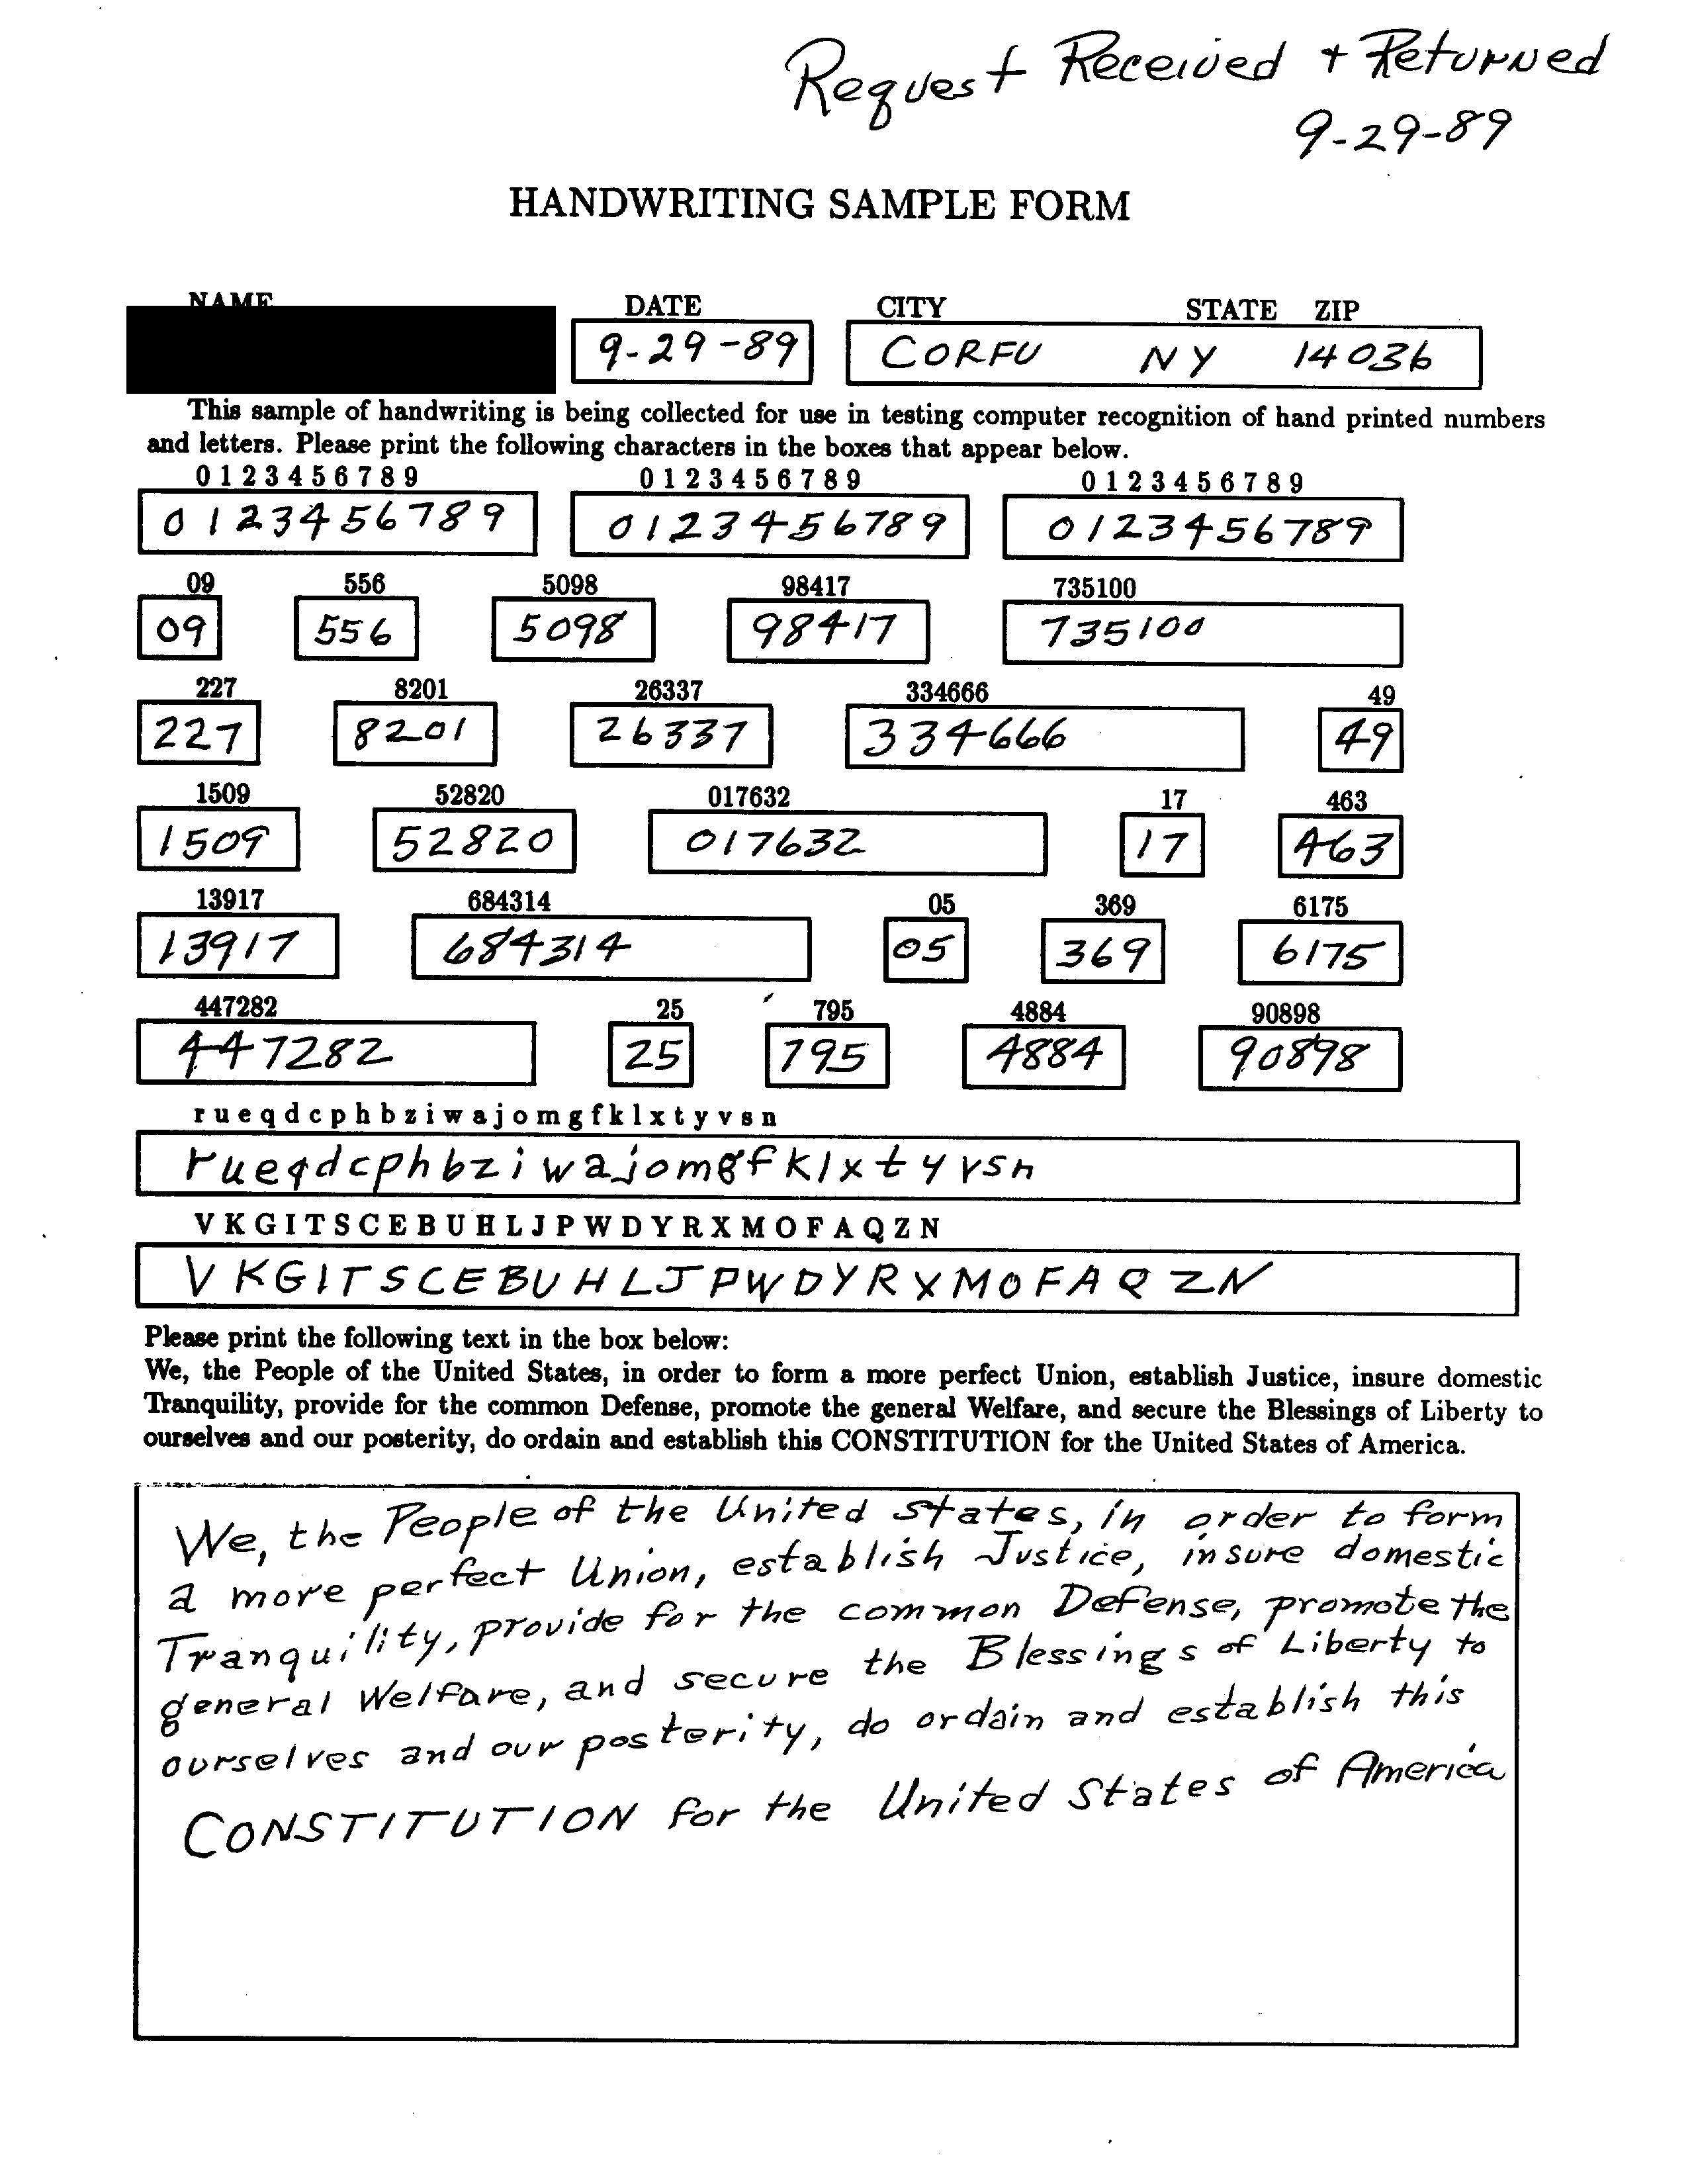 Request Received + Returned
9-29-89
HANDWRITING SAMPLE FORM
NAME DATE CITY STATE ZIP
9-29-89 CORFU NY 14036
This sample of handwriting is being collected for use in testing computer recognition of hand printed numbers
and letters. Please print the following characters in the boxes that appear below.
0 1 2 3 4 5 6 7 8 9 0 1 2 3 4 5 6 7 8 9 0 1 2 3 4 5 6 7 8 9
0 1 2 3 4 5 6 7 8 9 0 1 2 3 4 5 6 7 8 9 0 1 2 3 4 5 6 7 8 9
09 556 5098 98417 735100
09 556 5098 98417 735100
227 8201 26337 334666 49
227 8201 26337 334666 49
1509 52820 017632 17 463
1509 52820 017632 17 463
13917 684314 05 369 6175
13917 684314 05 369 6175
447282 25 795 4884 90898
447282 25 795 4884 90898
r u e q d c p h b z i w a j o m g f k l x t y v s n
r u e q d c p h b z i w a j o m g f k l x t y v s n
V K G I T S C E B U H L J P W D Y R X M O F A Q Z N
V K G I T S C E B U H L J P W D Y R X M O F A Q Z N
Please print the following text in the box below:
We, the People of the United States, in order to form a more perfect Union, establish Justice, insure domestic
Tranquility, provide for the common Defense, promote the general Welfare, and secure the Blessings of Liberty to
ourselves and our posterity, do ordain and establish this CONSTITUTION for the United States of America.
We, the People of the United States, in order to form
a more perfect Union, establish Justice, insure domestic
Tranquility, provide for the common Defense, promote the
general Welfare, and secure the Blessings of Liberty to
ourselves and our posterity, do ordain and establish this
CONSTITUTION for the United States of America